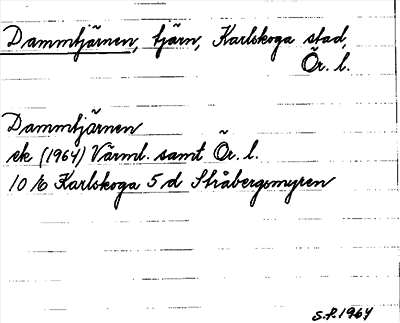 Dammtjärnen, tjärn, Karlskoga stad,
Ör. l.
Dammtjärnen
ek (1964) Värml. samt Ör. l.
10 E Karlskoga 5 d Stråbergsmyren
S.F. 1964